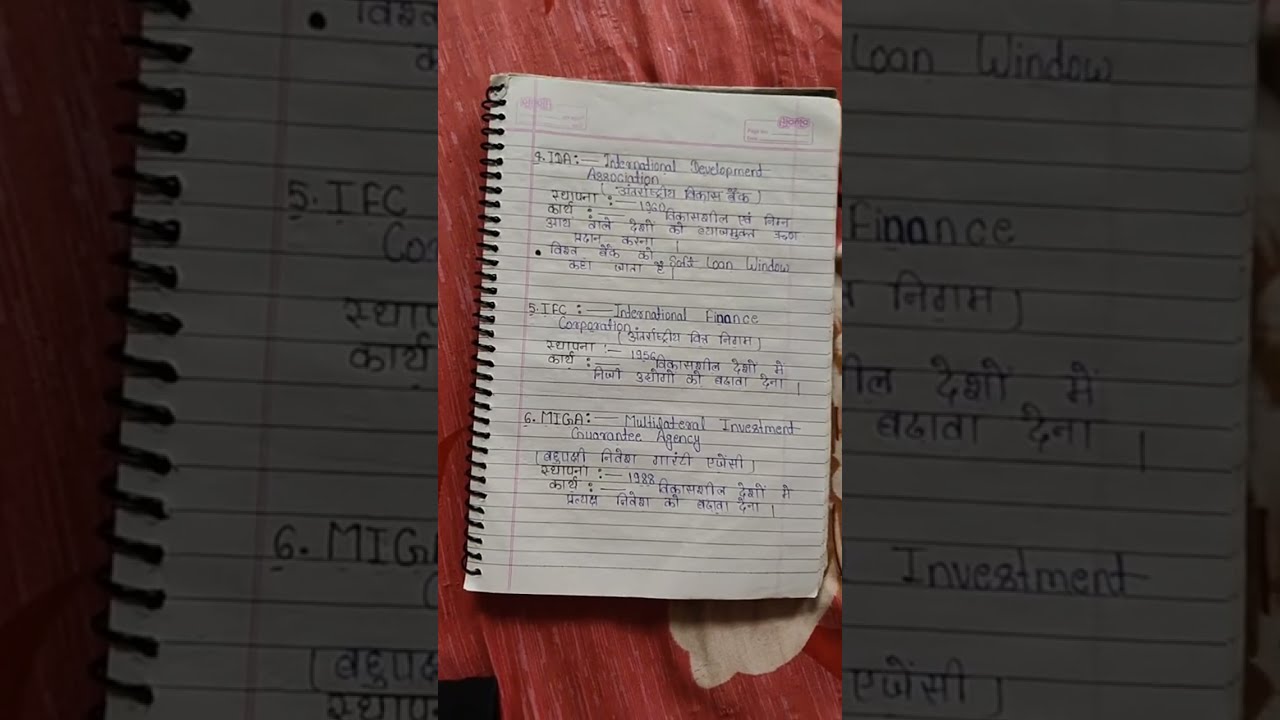 4. IDA :— International Development
Association
(अंतर्राष्ट्रीय विकास बैंक)
स्थापना :— 1960
कार्य :— विकासशील एवं निम्न
आय वाले देशों को ब्याजमुक्त ऋण
प्रदान करना ।
• विश्व बैंक को Soft Loan Window
कहा जाता है ।
5. IFC :— International Finance
Corporation
(अंतर्राष्ट्रीय वित्त निगम)
स्थापना :— 1956
कार्य :— विकासशील देशों में
निजी उद्योगों को बढावा देना ।
6. MIGA :— Multilateral Investment
Guarantee Agency
(बहुपक्षी निवेश गारंटी एजेंसी)
स्थापना :— 1988
कार्य :— विकासशील देशों में
प्रत्यक्ष निवेश को बढावा देना ।